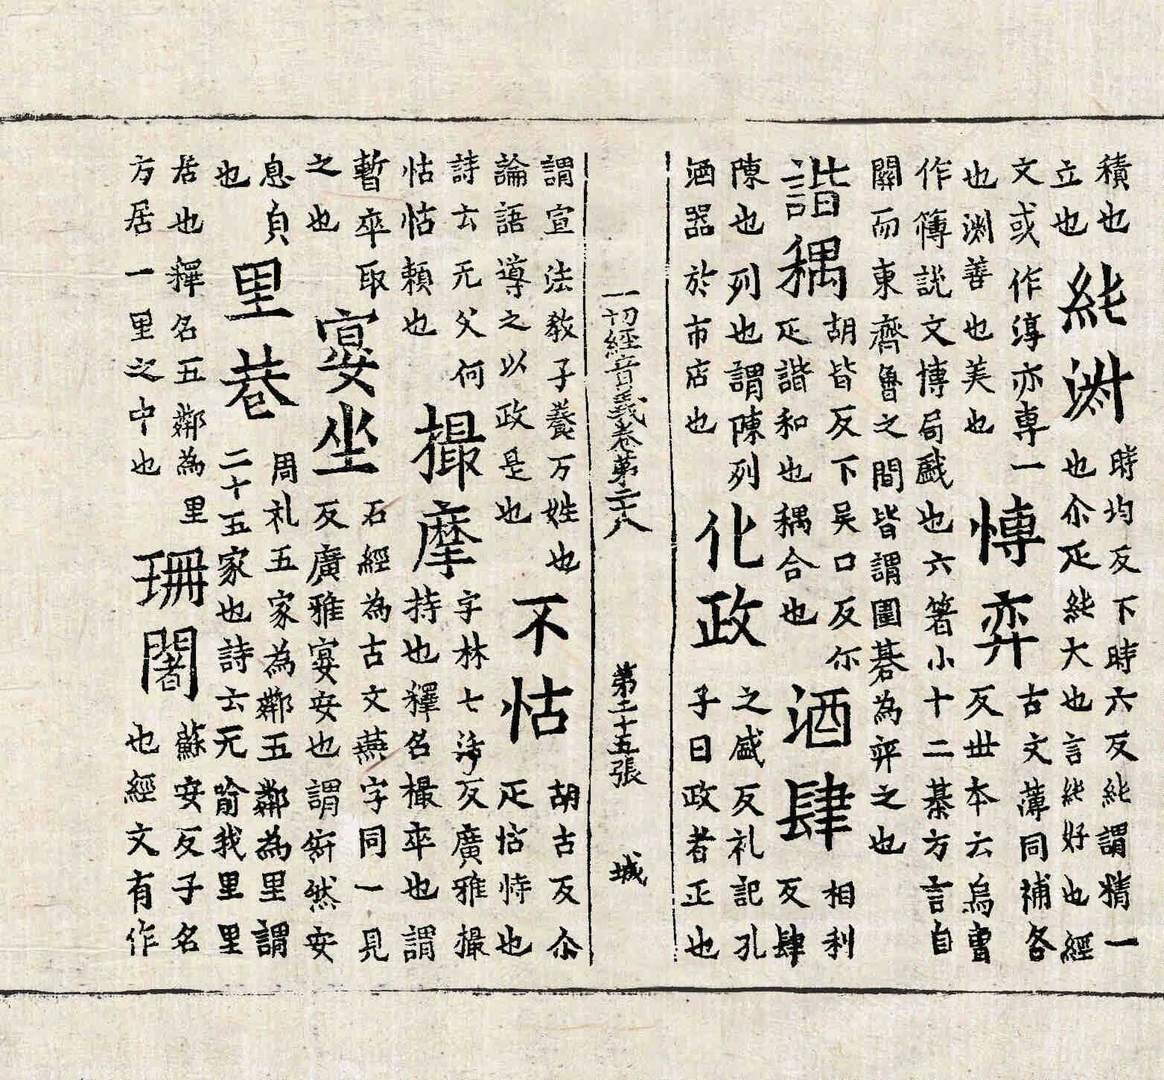 積也立也純淑時均反下時六反純謂精一也尒疋純大也言純好也經
文或作淳亦専一也淑善也美也愽弈古文簿同補各反世本云烏曺
作簙説文愽局戲也六箸小十二棊方言自關而東齊魯之間皆謂圍碁為弈之也
諧耦胡皆反下吳口反尒疋諧和也耦合也酒肆相利反肆
陳也列也謂陳列酒器於市店也化政之盛反礼記孔子曰政者正也
一切經音義卷第二十八 第二十五張 城
謂宣法教子養万姓也論語導之以政是也不怙胡古反尒疋怙恃也
詩云无父何怙怙頼也撮摩字林七活反廣雅撮持也釋名撮卒也謂
暫卒取之也宴坐石經為古文燕字同一見反廣雅宴安也謂宴然安
息皃也里巷周礼五家為鄰五鄰為里謂二十五家也詩云无踰我里里
居也釋名五鄰為里方居一里之中也珊闍蘇安反子名也經文有作